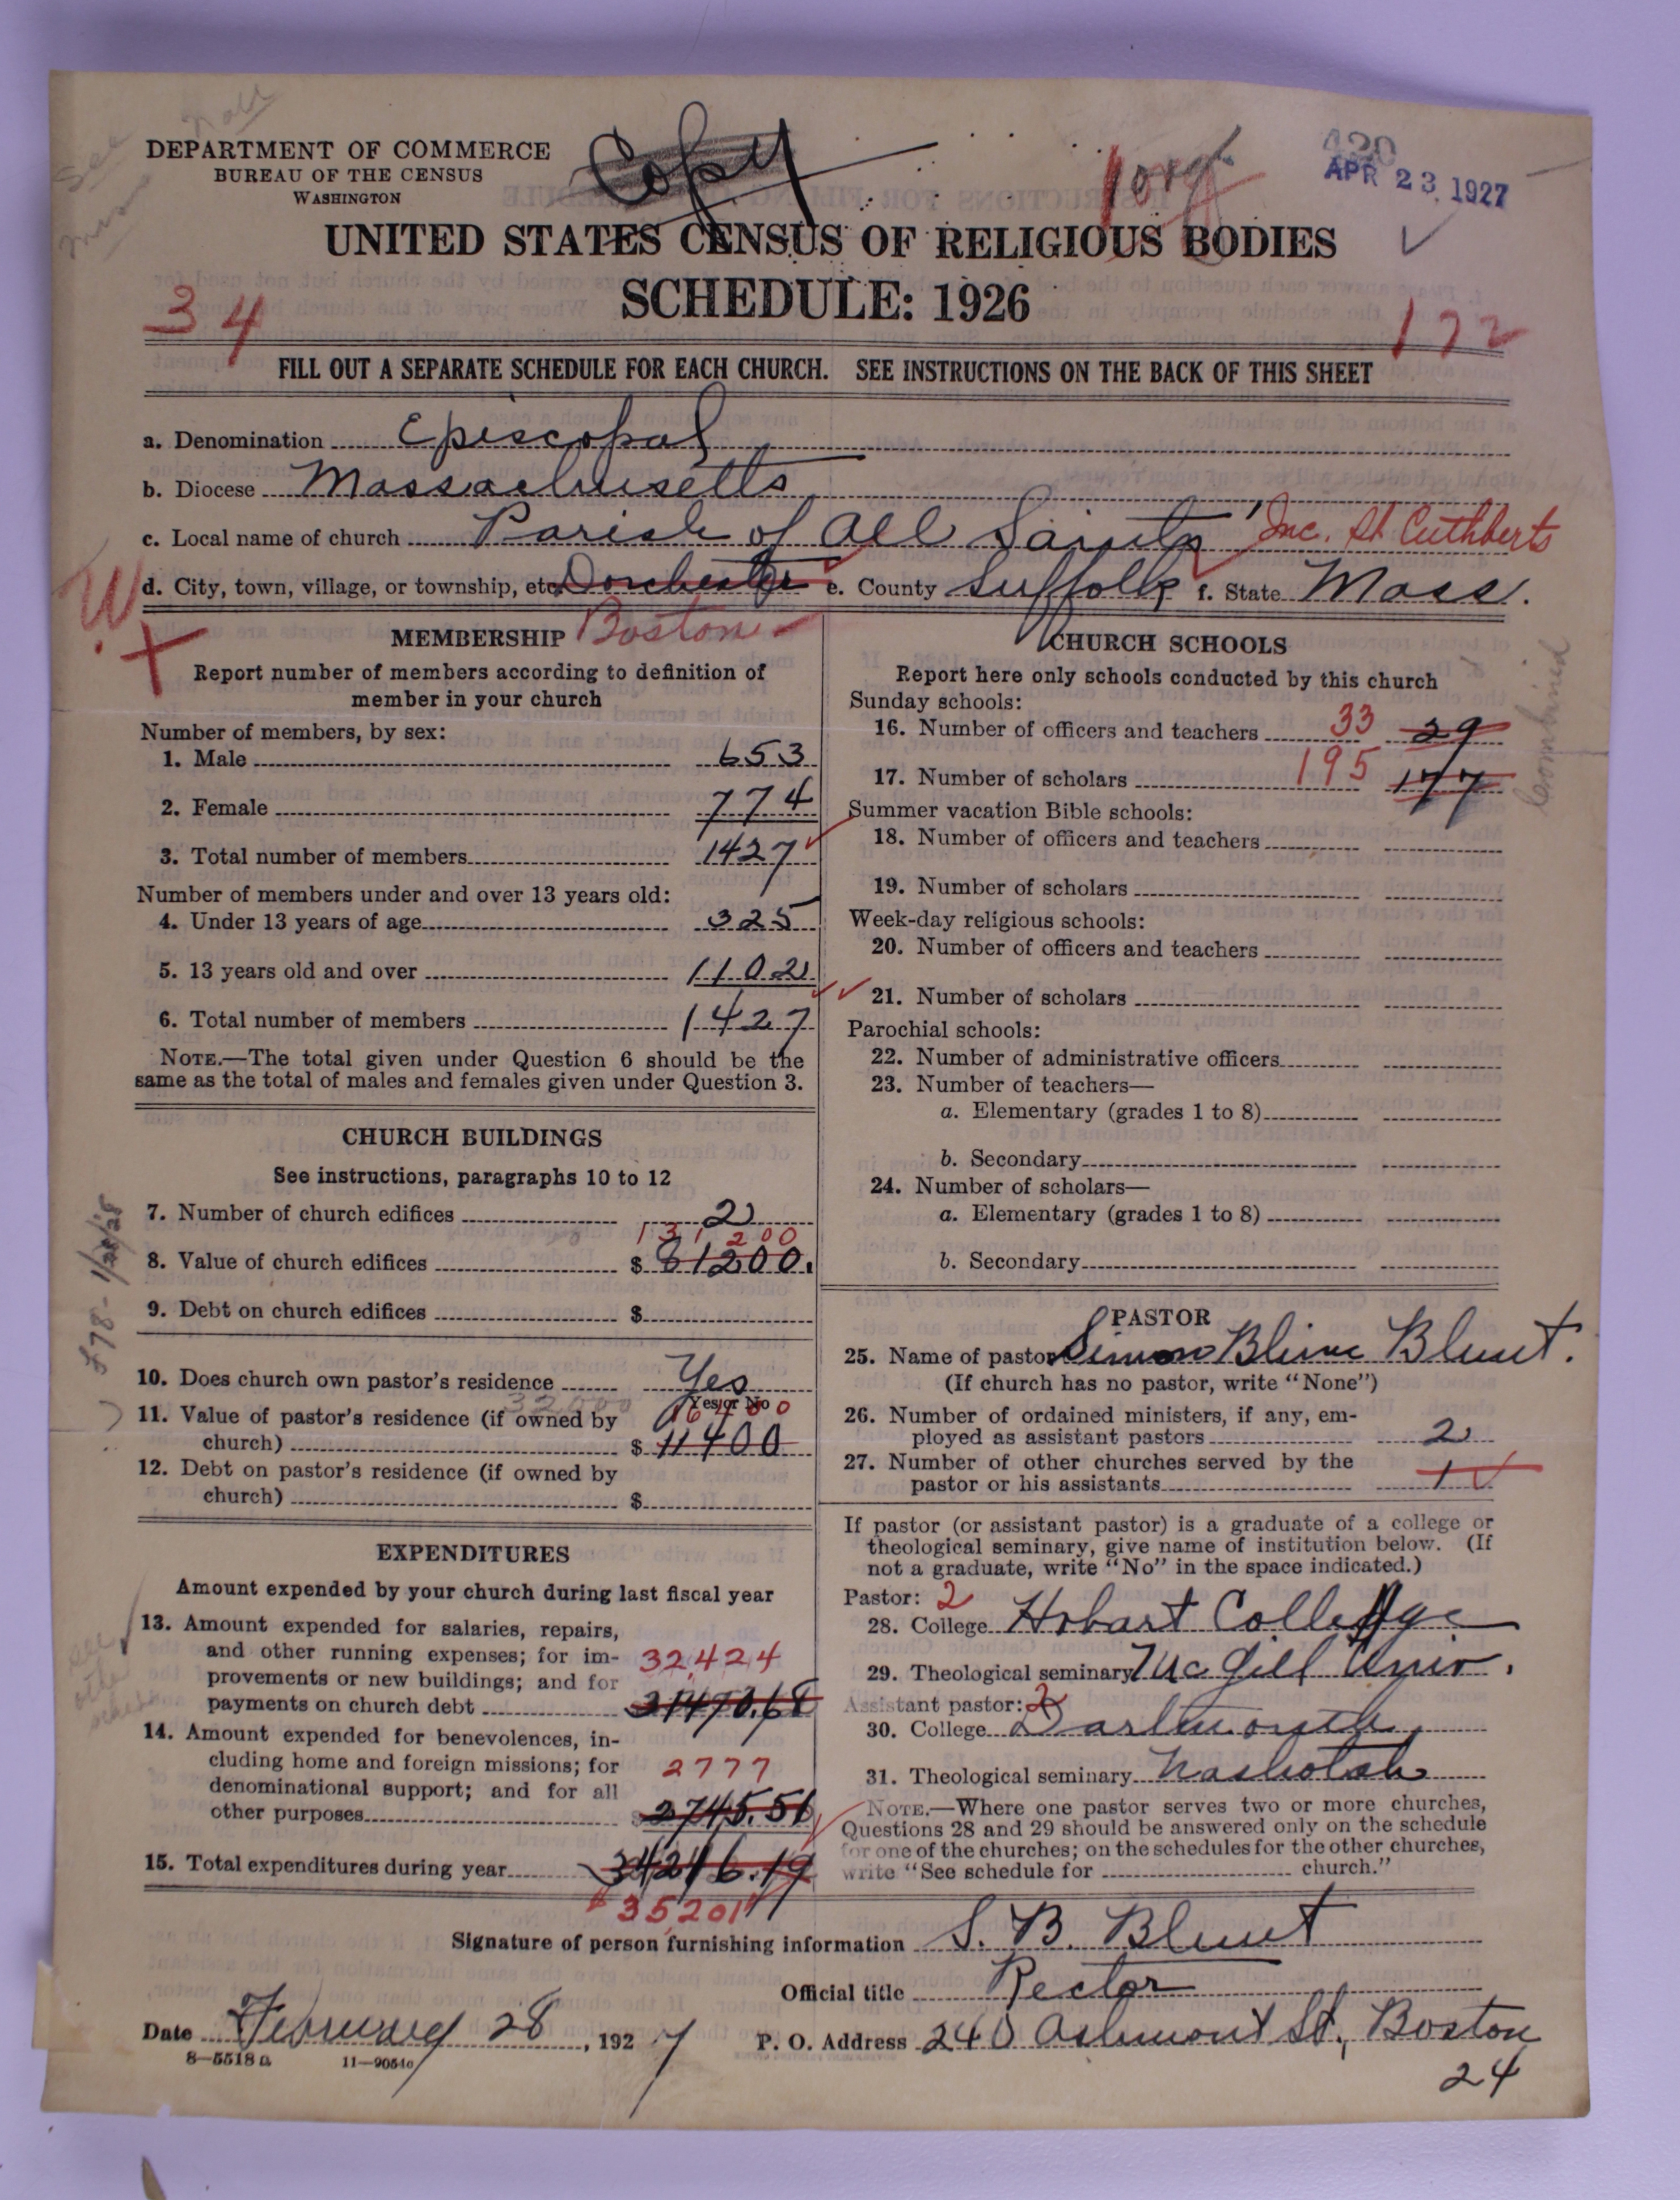 DEPARTMENT OF COMMERCE
BUREAU OF THE CENSUS
WASHINGTON
Copy
APR 23 1927
UNITED STATES CENSUS OF RELIGIOUS BODIES
SCHEDULE: 1926
34
172
FILL OUT A SEPARATE SCHEDULE FOR EACH CHURCH. SEE INSTRUCTIONS ON THE BACK OF THIS SHEET
a. Denomination Episcopal
b. Diocese Massachusetts
c. Local name of church Parish of All Saints' Inc. St Cuthberts
d. City, town, village, or township, etc. Dorchester e. County Suffolk f. State Mass.
Boston
MEMBERSHIP
Report number of members according to definition of
member in your church
Number of members, by sex:
1. Male 653
2. Female 774
3. Total number of members 1427
Number of members under and over 13 years old:
4. Under 13 years of age 325
5. 13 years old and over 1102
6. Total number of members 1427
NOTE.—The total given under Question 6 should be the
same as the total of males and females given under Question 3.
CHURCH BUILDINGS
See instructions, paragraphs 10 to 12
7. Number of church edifices 2
131200
8. Value of church edifices $ 81200.
9. Debt on church edifices $
10. Does church own pastor's residence Yes
Yes or No
16400
11. Value of pastor's residence (if owned by
church) $ 11400
12. Debt on pastor's residence (if owned by
church) $
EXPENDITURES
Amount expended by your church during last fiscal year
13. Amount expended for salaries, repairs,
and other running expenses; for im-
provements or new buildings; and for
32,424
payments on church debt 31470.68
14. Amount expended for benevolences, in-
cluding home and foreign missions; for
2777
denominational support; and for all
other purposes 2745.51
15. Total expenditures during year 34216.19
$35,201
CHURCH SCHOOLS
Report here only schools conducted by this church
Sunday schools:
16. Number of officers and teachers 33 29
17. Number of scholars 195 177
Combined
Summer vacation Bible schools:
18. Number of officers and teachers
19. Number of scholars
Week-day religious schools:
20. Number of officers and teachers
21. Number of scholars
Parochial schools:
22. Number of administrative officers
23. Number of teachers—
a. Elementary (grades 1 to 8)
b. Secondary
24. Number of scholars—
a. Elementary (grades 1 to 8)
b. Secondary
PASTOR
25. Name of pastor Simon Blinn Blunt.
(If church has no pastor, write "None")
26. Number of ordained ministers, if any, em-
ployed as assistant pastors 2
27. Number of other churches served by the
pastor or his assistants 1
If pastor (or assistant pastor) is a graduate of a college or
theological seminary, give name of institution below. (If
not a graduate, write "No" in the space indicated.)
Pastor: 2
28. College Hobart College
29. Theological seminary McGill Univ.
Assistant pastor: 2
30. College Dartmouth
31. Theological seminary Nashotah
NOTE.—Where one pastor serves two or more churches,
Questions 28 and 29 should be answered only on the schedule
for one of the churches; on the schedules for the other churches,
write "See schedule for church."
Signature of person furnishing information S. B. Blunt
Official title Rector
Date February 28, 1927 P. O. Address 240 Ashmont St., Boston
24
8—5518a 11—9054